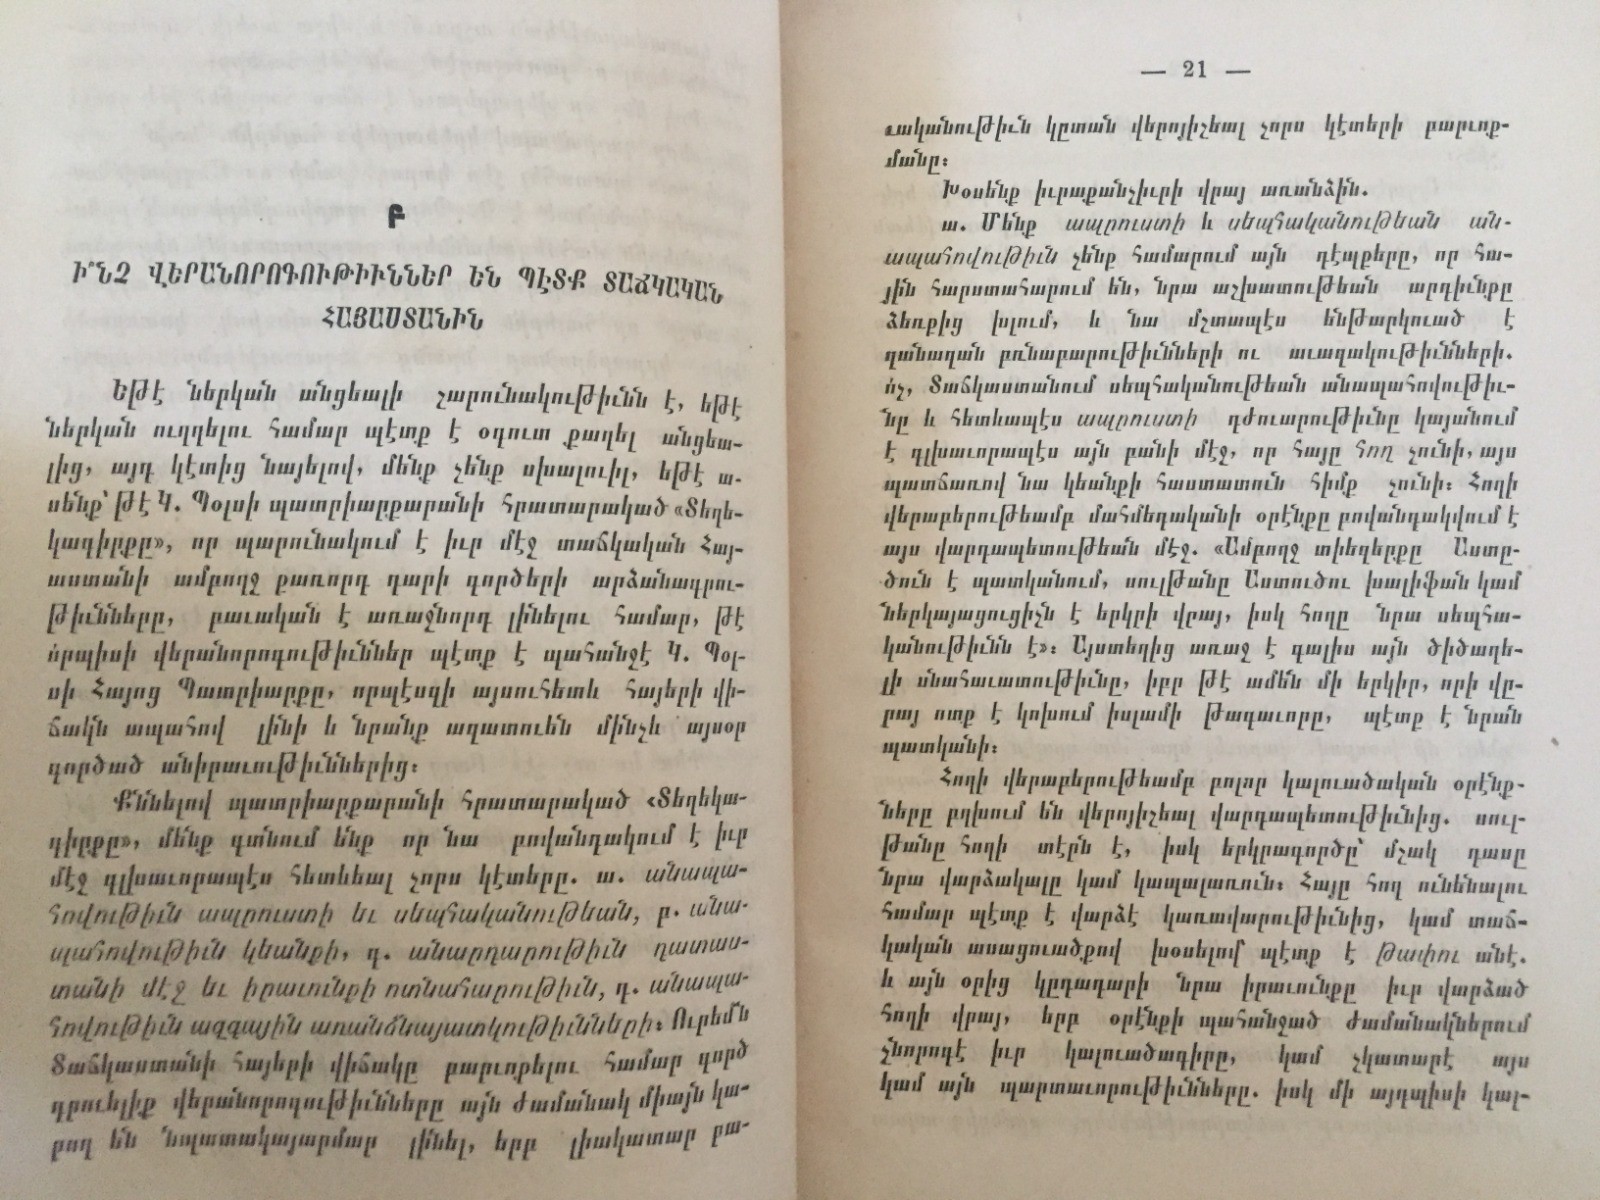 Բ
Ի՞ՆՉ ՎԵՐԱՆՈՐՈԳՈՒԹԻՒՆՆԵՐ ԵՆ ՊԷՏՔ ՏԱՃԿԱԿԱՆ
ՀԱՅԱՍՏԱՆԻՆ
Եթէ ներկան անցեալի շարունակութիւնն է, եթէ
ներկան ուղղելու համար պէտք է օգուտ քաղել անցեա-
լից, այդ կէտից նայելով, մենք չենք սխալուիլ, եթէ ա-
սենք՝ թէ Կ. Պօլսի պատրիարքարանի հրատարակած «Տեղե-
կագիրքը», որ պարունակում է իւր մէջ տաճկական Հայ-
աստանի ամբողջ քառորդ դարի գործերի արձանագրու-
թիւնները, բաւական է առաջնորդ լինելու համար, թէ
ո՛րպիսի վերանորոգութիւններ պէտք է պահանջէ Կ. Պօլ-
սի Հայոց Պատրիարքը, որպէսզի այսուհետև հայերի վի-
ճակն ապահով լինի և նրանք ազատուեն մինչև այսօր
գործած անիրաւութիւններից։
Քննելով պատրիարքարանի հրատարակած «Տեղեկա-
գիրքը», մենք գտնում ենք որ նա բովանդակում է իւր
մէջ գլխաւորապէս հետևեալ չորս կէտերը. ա. անապա-
հովութիւն ապրուստի եւ սեպհականութեան, բ. անա-
պահովութիւն կեանքի, գ. անարդարութիւն դատաս-
տանի մէջ եւ իրաւունքի ոտնահարութիւն, դ. անապա-
հովութիւն ազգային առանձնայատկութիւնների։ Ուրեմն
Տաճկաստանի հայերի վիճակը բարւոքելու համար գործ
դրուելիք վերանորոգութիւնները այն ժամանակ միայն կա-
րող են նպատակայարմար լինել, երբ լիակատար բա-
— 21 —
ւականութիւն կըտան վերոյիշեալ չորս կէտերի բարւոք-
մանը։
Խօսենք իւրաքանչիւրի վրայ առանձին.
ա. Մենք ապրուստի և սեպհականութեան ան-
ապահովութիւն չենք համարում այն դէպքերը, որ հա-
յին հարստահարում են, նրա աշխատութեան արդիւնքը
ձեռքից խլում, և նա մշտապէս ենթարկուած է
զանազան բռնաբարութիւնների ու աւազակութիւնների.
ո՛չ, Տաճկաստանում սեպհականութեան անապահովութիւ-
նը և հետևապէս ապրուստի դժուարութիւնը կայանում
է գլխաւորապէս այն բանի մէջ, որ հայը հող չունի, այս
պատճառով նա կեանքի հաստատուն հիմք չունի։ Հողի
վերաբերութեամբ մահմեդականի օրէնքը բովանդակվում է
այս վարդապետութեան մէջ. «Ամբողջ տիեզերքը Աստը-
ծուն է պատկանում, սուլթանը Աստուծու խալիֆան կամ
ներկայացուցիչն է երկրի վրայ, իսկ հողը նրա սեպհա-
կանութիւնն է»։ Այստեղից առաջ է գալիս այն ծիծաղե-
լի սնահաւատութիւնը, իբր թէ ամեն մի երկիր, որի վը-
րայ ոտք է կոխում իսլամի թագաւորը, պէտք է նրան
պատկանի։
Հողի վերաբերութեամբ բոլոր կալուածական օրէնք-
ները բղխում են վերոյիշեալ վարդապետութիւնից. սուլ-
թանը հողի տէրն է, իսկ երկրագործը՝ մշակ դասը
նրա վարձակալը կամ կապալառուն։ Հայը հող ունենալու
համար պէտք է վարձէ կառավարութիւնից, կամ տաճ-
կական ասացուածքով խօսելով պէտք է թափու անէ.
և այն օրից կըդադարի նրա իրաւունքը իւր վարձած
հողի վրայ, երբ օրէնքի պահանջած ժամանակներում
չնորոգէ իւր կալուածագիրը, կամ չկատարէ այս
կամ այն պարտաւորութիւնները. իսկ մի այդպիսի կալ-